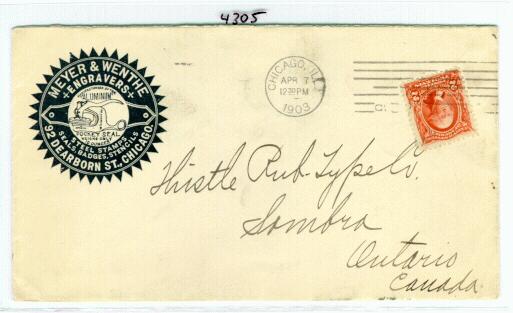 4305
MEYER & WENTHE
ENGRAVERS
ALUMINUM
POCKET SEAL
STEEL STAMPS,
SEALS, BADGES, STENCILS
92 DEARBORN ST., CHICAGO.
CHICAGO, ILL.
APR 7
12 30 PM
1903
Thistle Rub-Type Co.
Sombra
Ontario
Canada